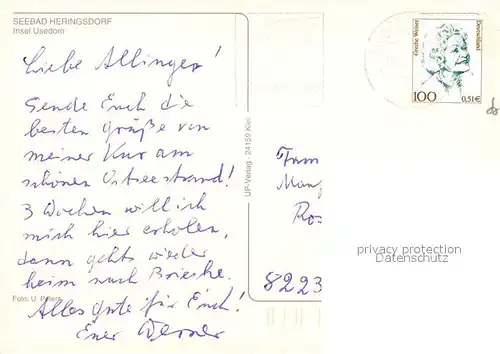 SEEBAD HERINGSDORF
Insel Usedom
Liebe Allinger!
Sende Euch die
besten Grüße von
meiner Kur am
schönen Ostseestrand!
3 Wochen will ich
mich hier erholen,
dann gehts wieder
heim nach Brieske.
Alles gute für Euch!
Euer Werner
Foto: U. Peters
UP-Verlag · 24159 Kiel
Grethe Weiser
Deutschland
100
0,51€
Fam
Ro
8223
privacy protection
Datenschutz